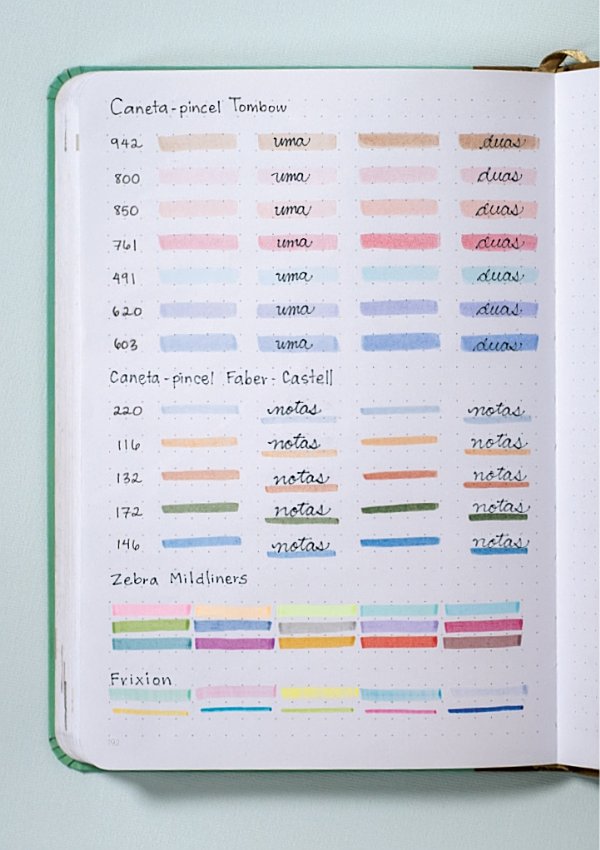 Caneta-pincel Tombow
942 uma duas
800 uma duas
850 uma duas
761 uma duas
491 uma duas
620 uma duas
603 uma duas
Caneta-pincel Faber-Castell
220 notas notas
116 notas notas
132 notas notas
172 notas notas
146 notas notas
Zebra Mildliners
Frixion